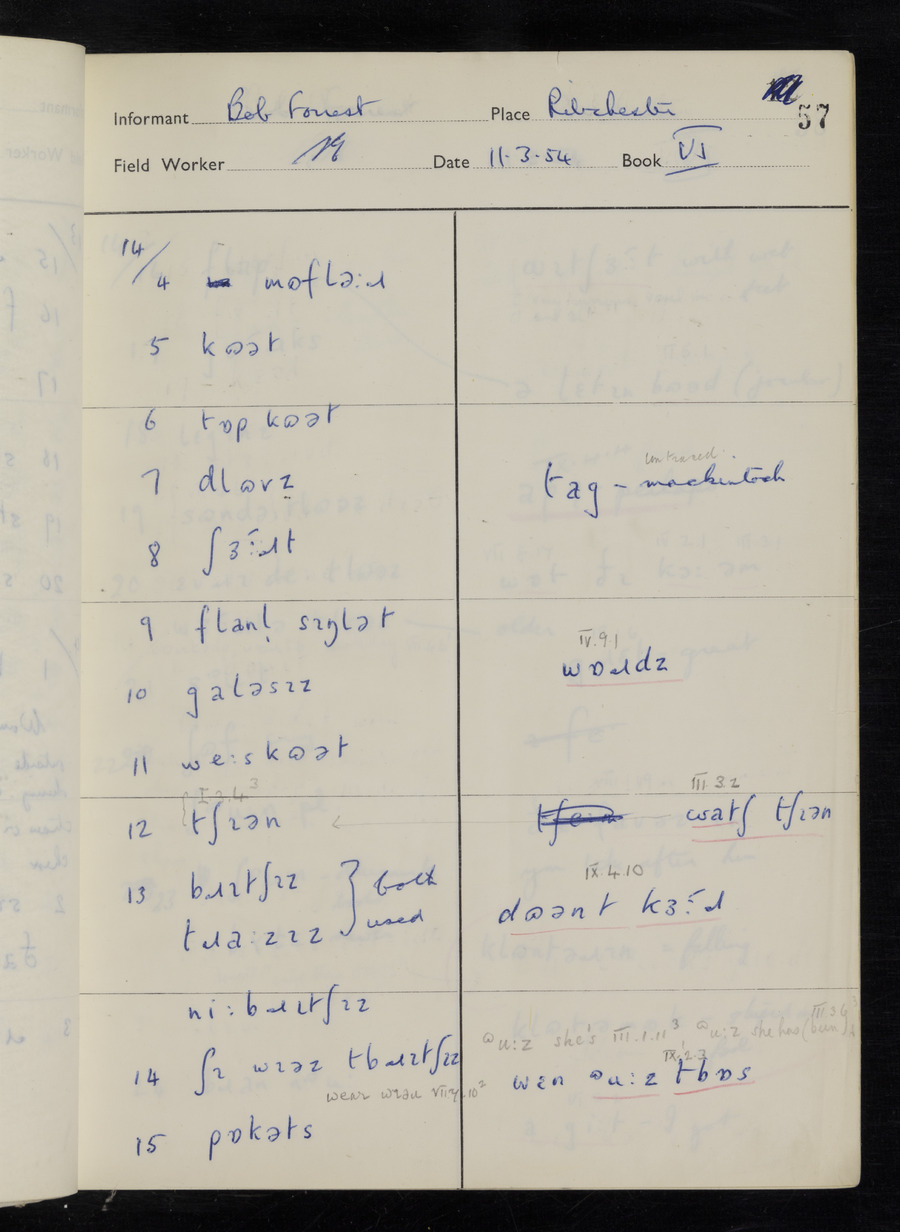 57
Informant Bob Forrest Place Ribchester
Field Worker Date 11.3.54 Book VI
14/
4 mɷflə:ɹ
5 kɷət
6 tɒp kɷət
7 dlɷvz
tag – mackintosh
untraced
8 ʃɜ:ɹt
9 flanl̩ sɪŋlət
IV.9.1
wɒɹdz
10 galəsɪz
11 we:skɷət
I.3.4³
III 3.2
12 tʃɪən
watʃ tʃɪən
13 bɹɪtʃɪz } both
tɹa:zɪz } used
IX.4.10
dɷənt kɜ:ɹ
ni:bɹɪtʃɪz
ɷu:z she's III.1.11³ ɷu:z she has (been) III 3.6
14 ʃɪ wɪəz tbɹɪtʃɪz
IX.2.3
wɛn ɷu:z tbɒs
wear wɪəɹ
15 pɒkəts